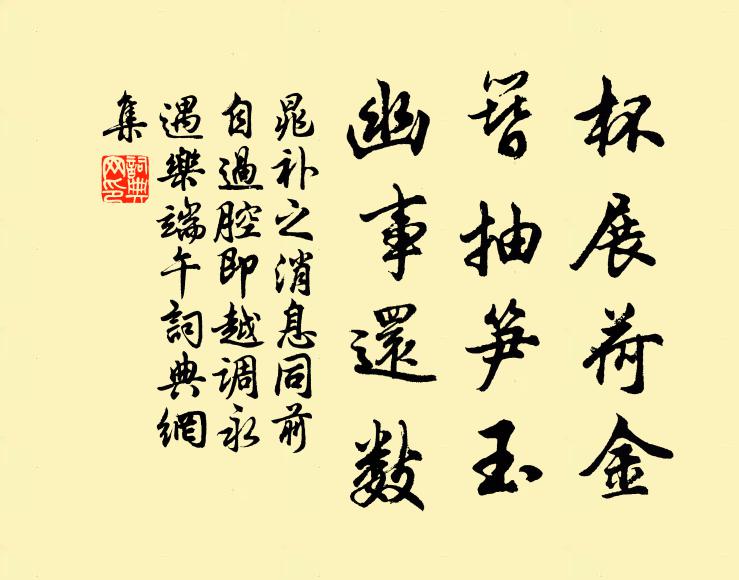 杯展荷金
簪抽笋玉
幽事還数
晁补之消息同前
自過腔即越调永
遇樂端午詞典網
集
詞典网印